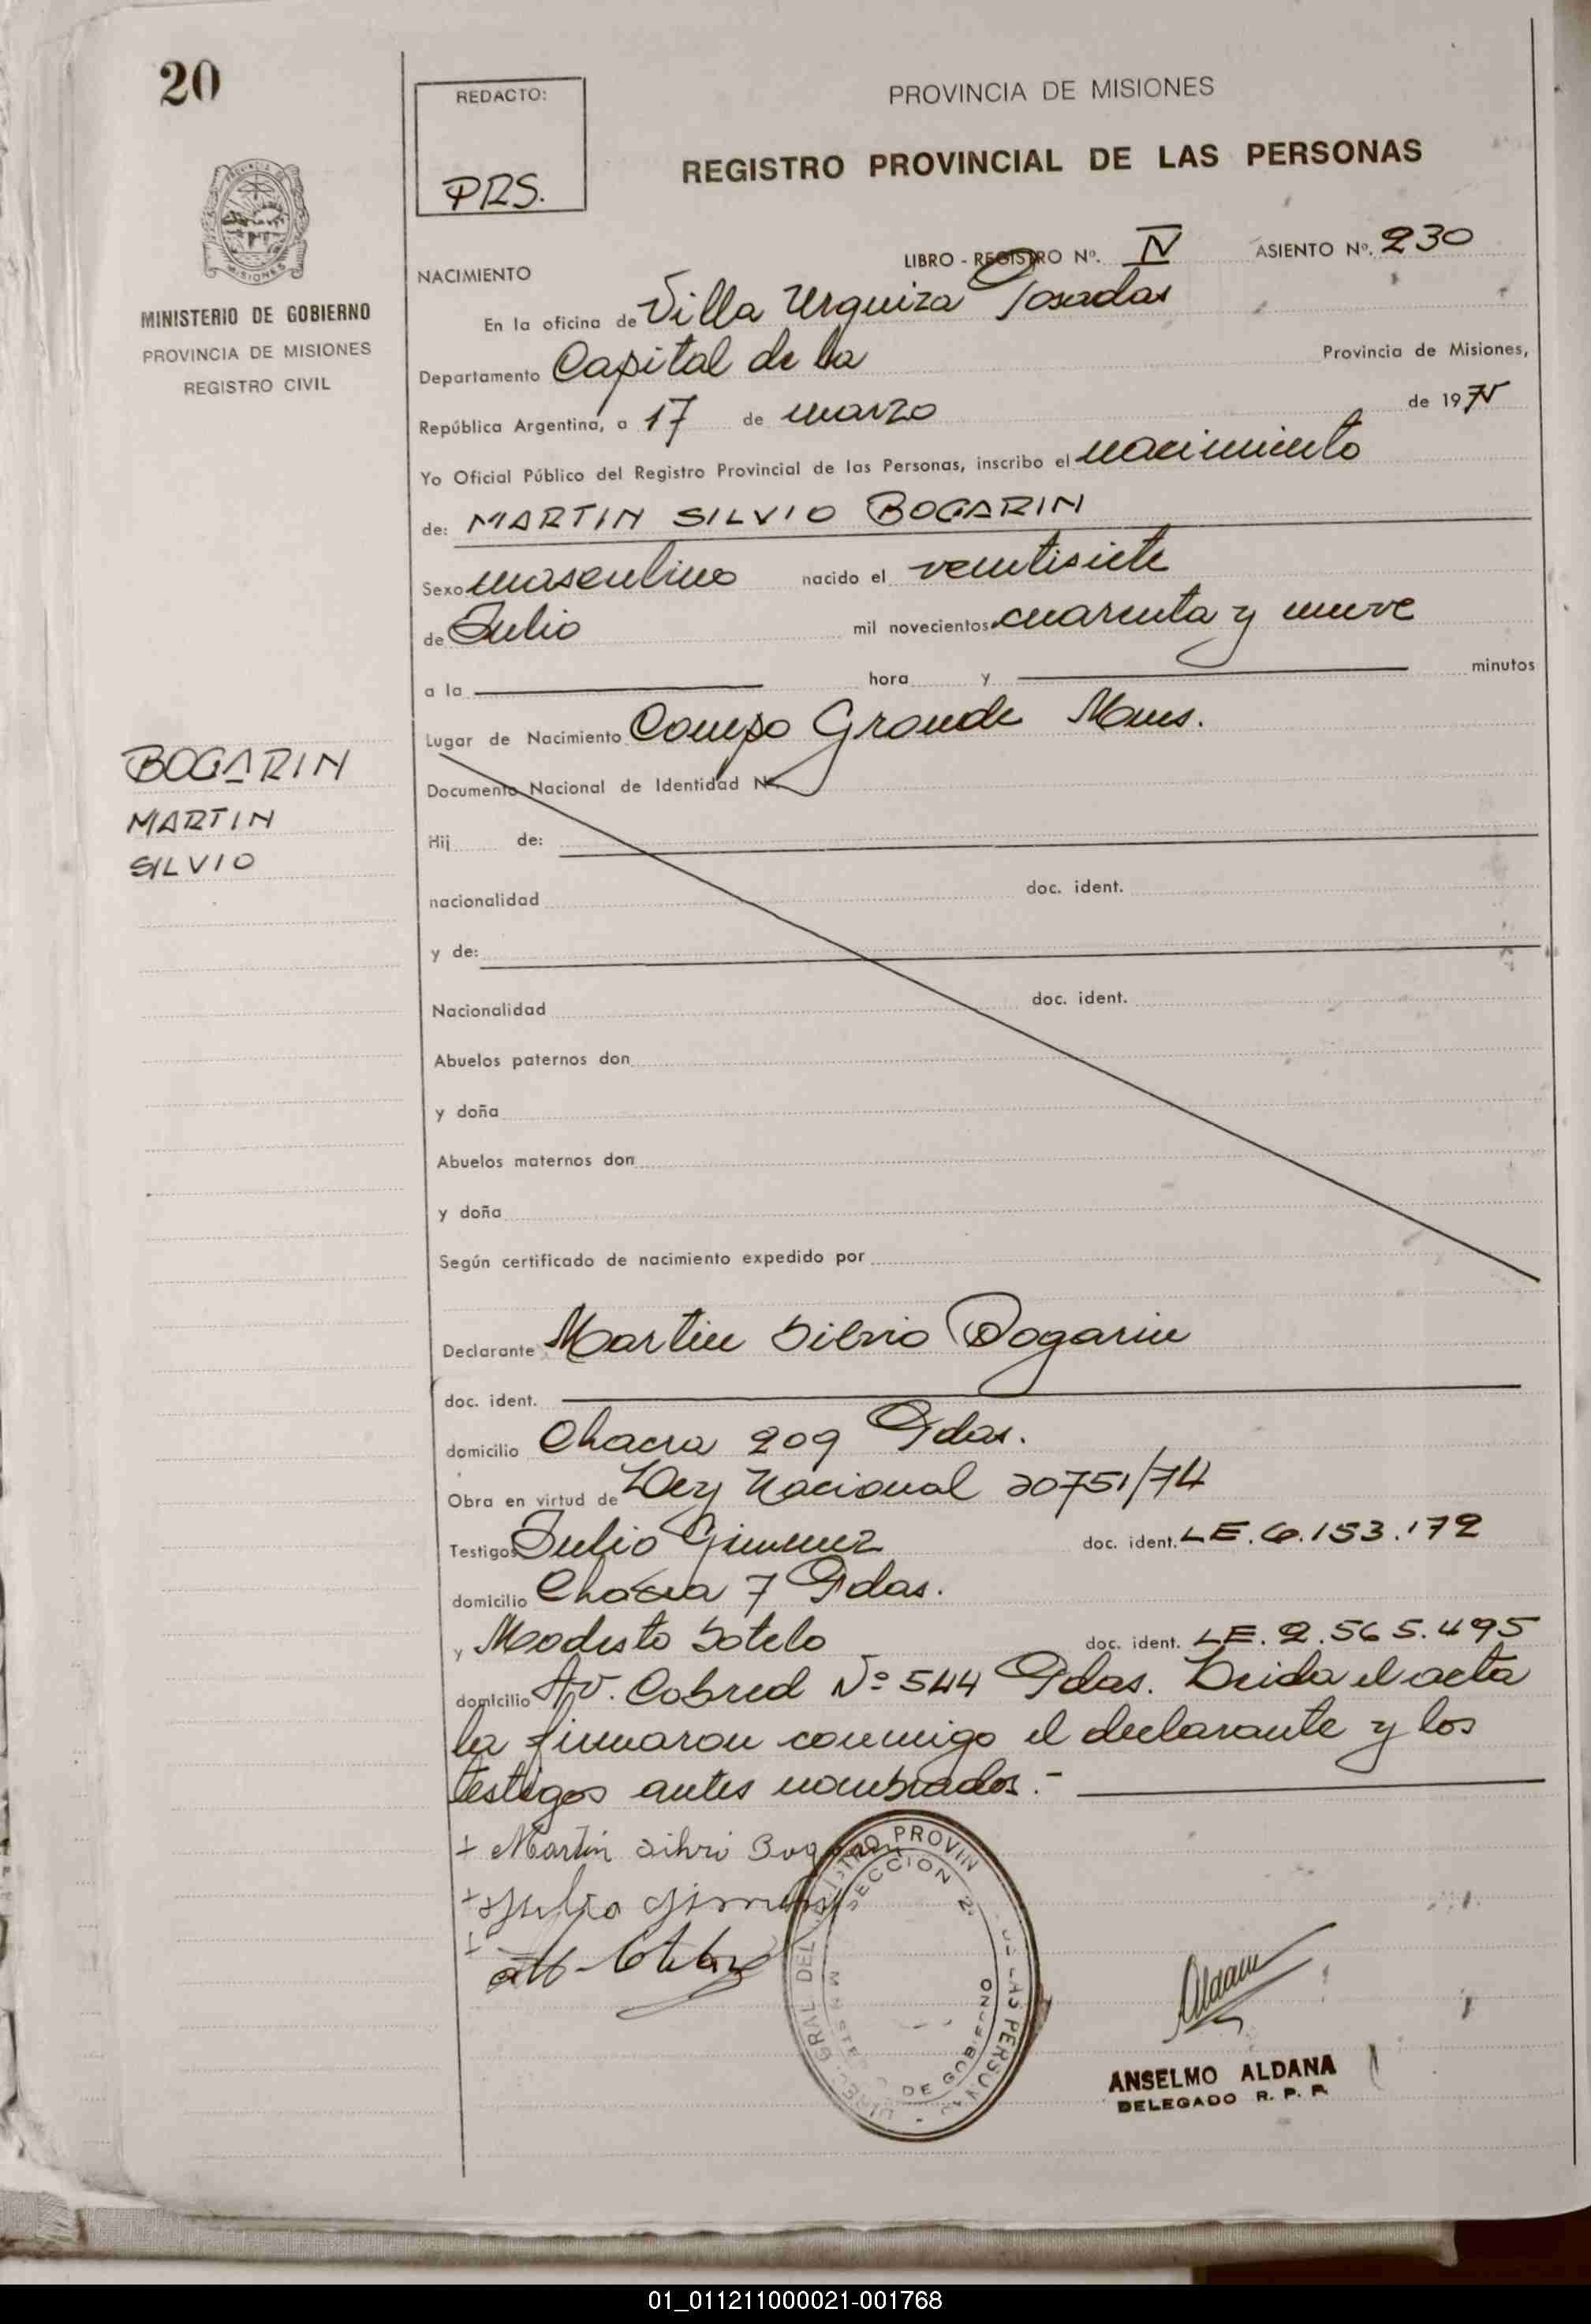 20
REDACTO:
PRS.
PROVINCIA DE MISIONES
REGISTRO PROVINCIAL DE LAS PERSONAS
MINISTERIO DE GOBIERNO
PROVINCIA DE MISIONES
REGISTRO CIVIL
LIBRO - REGISTRO Nº. IV ASIENTO Nº. 230
NACIMIENTO
En la oficina de Villa Urquiza Posadas
Departamento Capital de la Provincia de Misiones,
República Argentina, a 17 de marzo de 197
Yo Oficial Público del Registro Provincial de las Personas, inscribo el nacimiento
de: MARTIN SILVIO BOGARIN
Sexo masculino nacido el veintisiete
de Julio mil novecientos cuarenta y nueve
a la hora y minutos
Lugar de Nacimiento Campo Grande Mnes.
BOGARIN
MARTIN
SILVIO
Documento Nacional de Identidad Nº.
Hij de:
nacionalidad doc. ident.
y de:
Nacionalidad doc. ident.
Abuelos paternos don
y doña
Abuelos maternos don
y doña
Según certificado de nacimiento expedido por
Declarante Martin Silvio Bogarin
doc. ident.
domicilio Chacra 209 Pdas.
Obra en virtud de Ley Nacional 20751/74
Testigos Julio Gimenez doc. ident. LE. 6.153.172
domicilio Chacra 7 Pdas.
y Modesto Sotelo doc. ident. LE. 2.565.495
domicilio Av. Cabred Nº 544 Pdas. Leida el acta
la firmaron conmigo el declarante y los
testigos antes nombrados.-
+ Martin Silvio Bogarin
+ Julio Gimenez
DEL REGISTRO PROVIN DE LAS PERSONAS
SECCION 2ª
MINISTERIO DE GOBIERNO
Aldana
ANSELMO ALDANA
DELEGADO R. P. P.
01_011211000021-001768